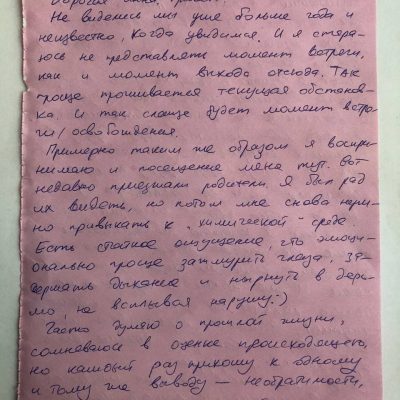 Дорогая Анна, привет!
Не виделись мы уже больше года и
неизвестно, когда увидимся. И я стара-
юсь не представлять момент встречи,
как и момент выхода отсюда. Так
проще проживается текущая обстанов-
ка. И так слаще будет момент встре-
чи/освобождения.
Примерно таким же образом я воспри-
нимаю и посещение меня тут. Вот
недавно приезжали родители. Я был рад
их видеть, но потом мне снова нуж-
но привыкать к „химической" среде.
Есть стойкое ощущение, что эмоци-
онально проще зажмурить глаза, за-
держать дыхание и нырнуть в дерь-
мо, не всплывая наружу :)
Часто думаю о прошлой жизни,
сомневаюсь в оценке происходящего,
но каждый раз прихожу к одному
и тому же выводу — необратимости,